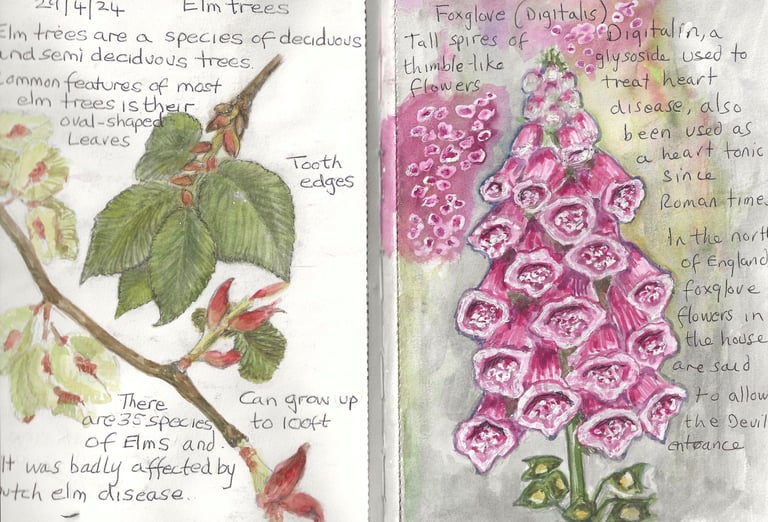 24/4/24 Elm trees
Elm trees are a species of deciduous
and semi deciduous trees.
Common features of most
elm trees is their
oval-shaped
Leaves
Tooth
edges
There
are 35 species
of Elms and
It was badly affected by
utch elm disease.
Can grow up
to 100ft
Foxglove (Digitalis)
Tall spires of
thimble-like
flowers
Digitalin, a
glysoside used to
treat heart
disease, also
been used as
a heart tonic
since
Roman times
In the north
of England
foxglove
flowers in
the house
are said
to allow
the Devil
entrance